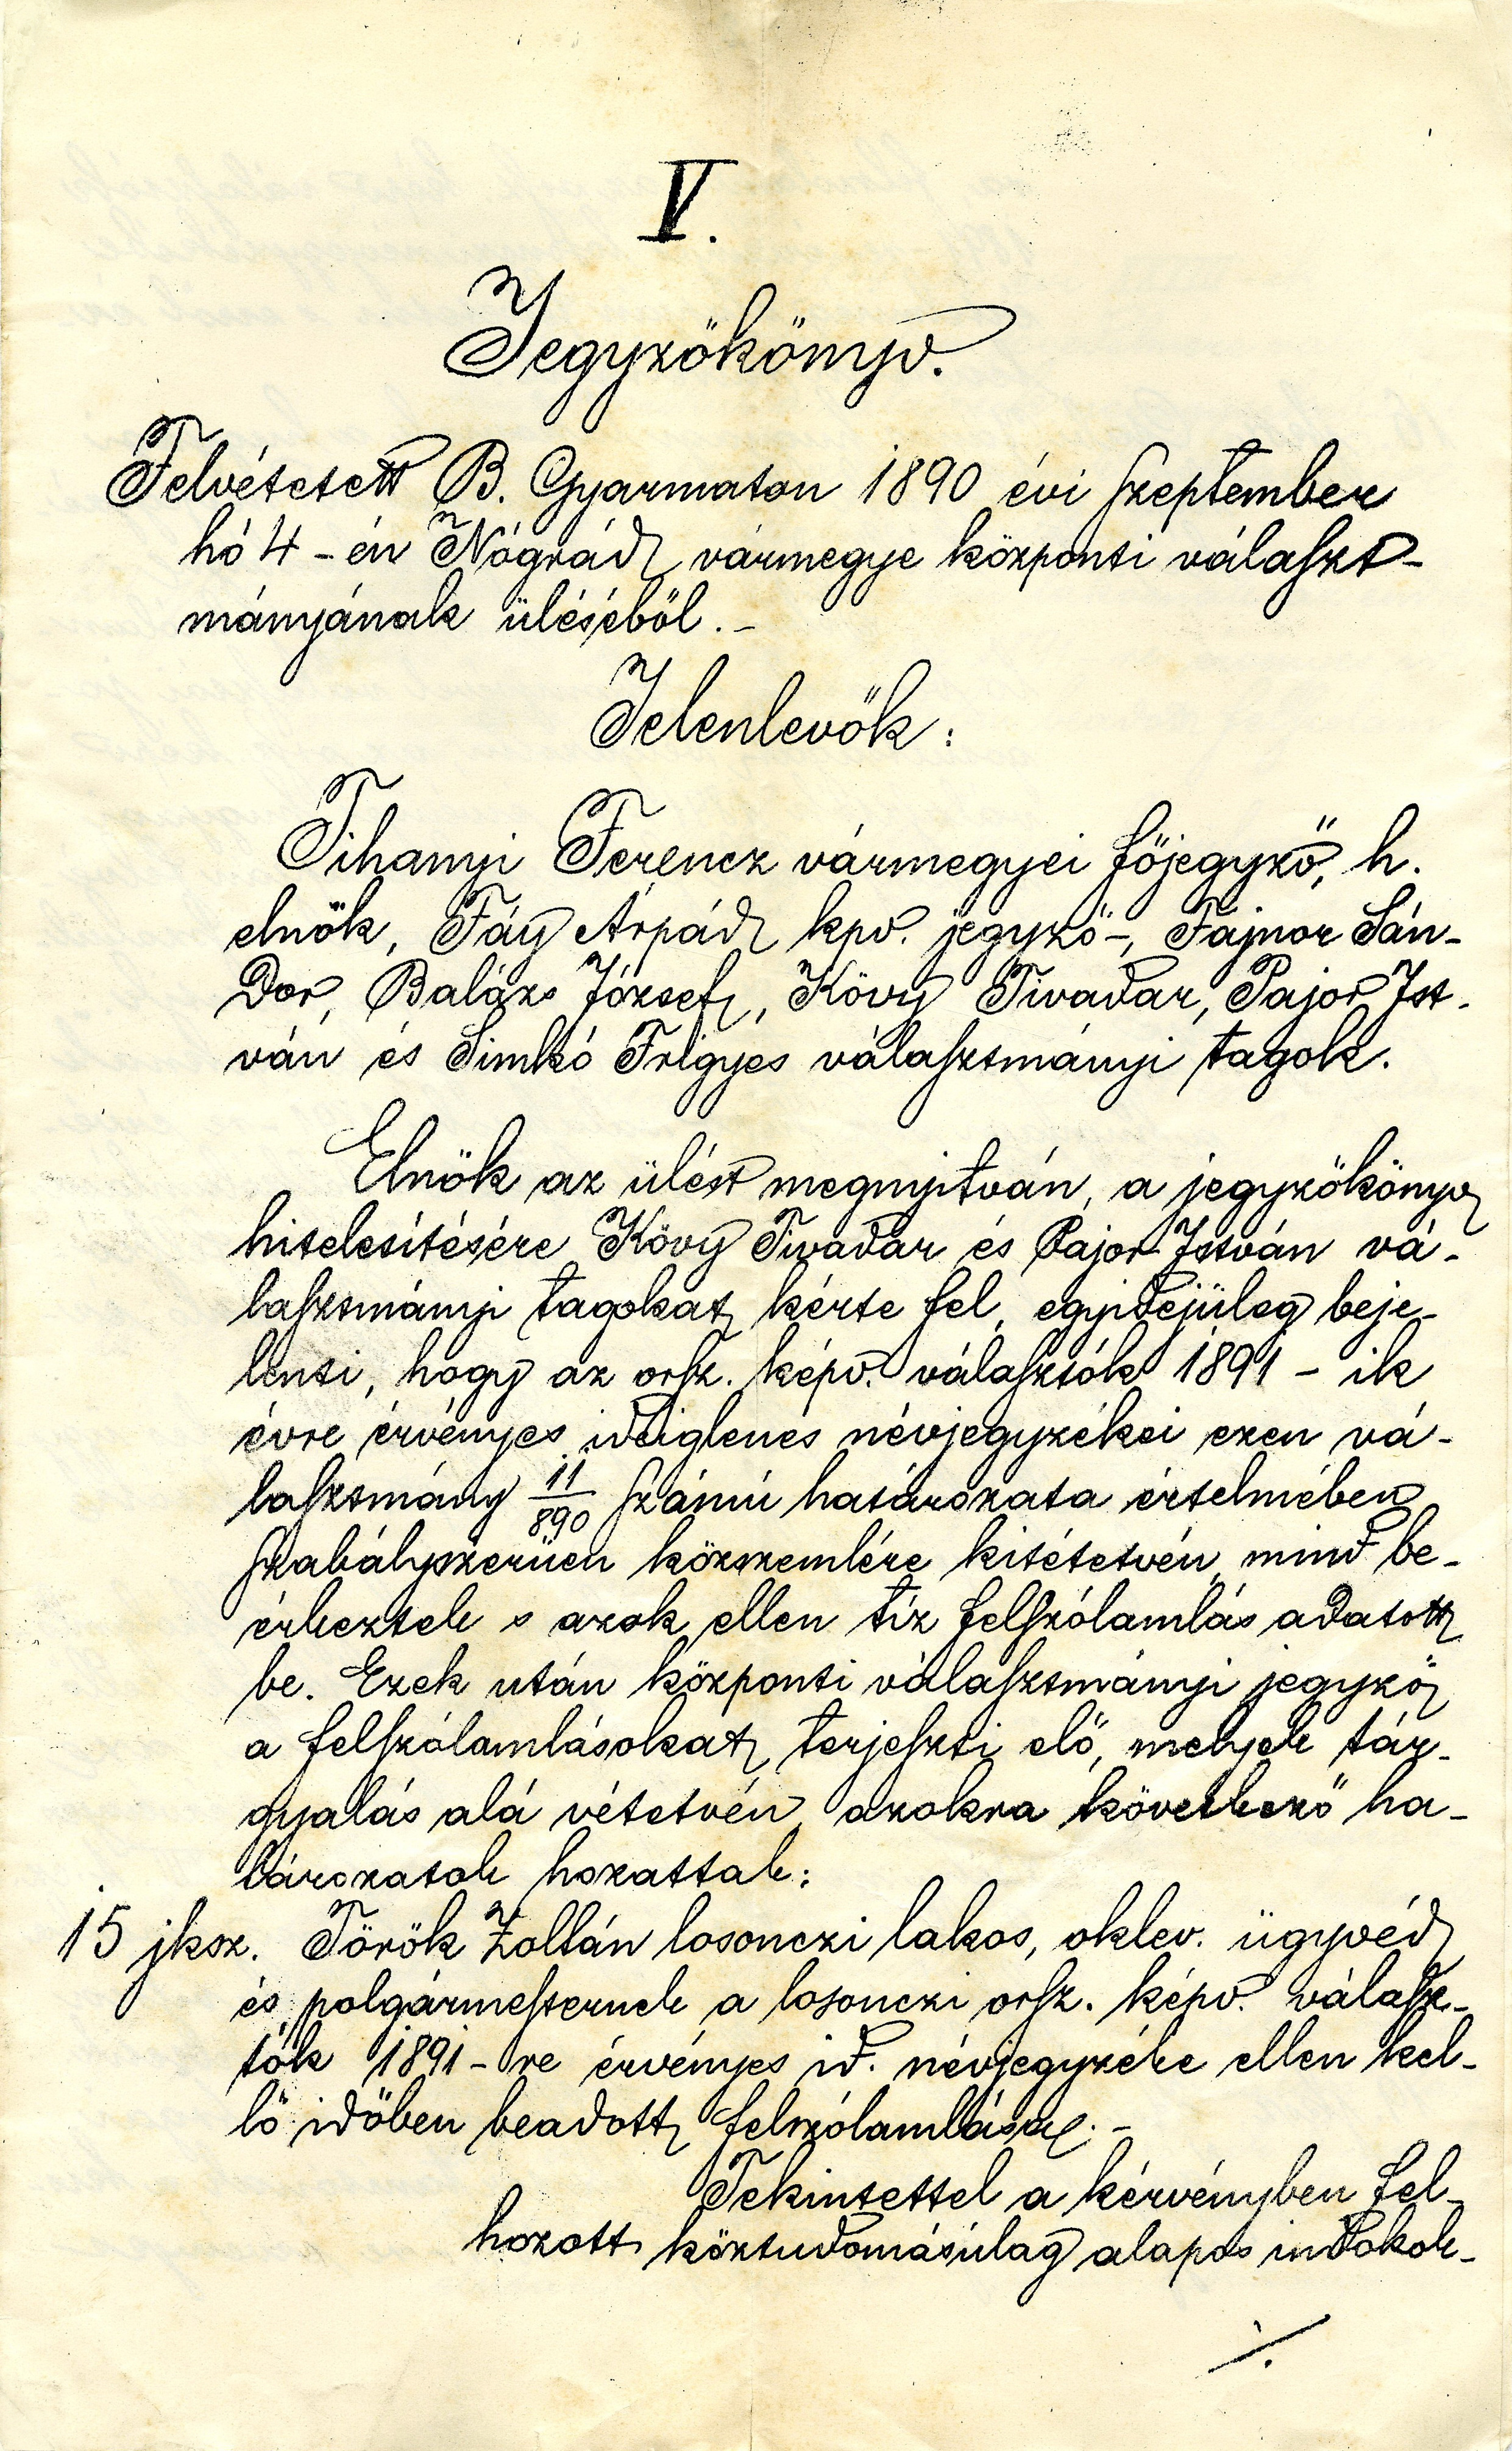 V.
Jegyzökönyv.
Felvétetett B. Gyarmaton 1890 évi szeptember
hó 4-én Nógrád vármegye központi választ-
mányának üléséböl.-
Jelenlevök:
Tihanyi Ferencz vármegyei föjegyző, h.
elnök, Fáy Árpád kpv. jegyző-, Fajnor Sán-
dor, Balázs József, Kövy Tivadar, Pajor Ist-
ván és Simkó Frigyes választmányi tagok.
Elnök az ülést megnyitván, a jegyzökönyv
hitelesítésére Kövy Tivadar és Pajor István vá-
lasztmányi tagokat kérte fel, egyidejüleg beje-
lenti, hogy az orsz. képv. választók 1891-ik
évre érvényes ideiglenes névjegyzékei ezen vá-
lasztmány 11/890 számú határozata értelmében
szabályszerüen közszemlére kitétetvén, mind be-
érkeztek s azok ellen tíz felszólamlás adatott
be. Ezek után központi választmányi jegyzö
a felszólamlásokat terjeszti elö, melyek tár-
gyalás alá vétetvén, azokra következő ha-
tározatok hozattak:
15 jksz. Török Zoltán losonczi lakos, oklev. ügyvéd
és polgármesternek a losonczi orsz. képv. válasz-
tók 1891-re érvényes id. névjegyzéke ellen kel-
lö idöben beadott felszólamlása.-
Tekintettel a kérvényben fel-
hozott köztudomásúlag alapos indokok-
./.